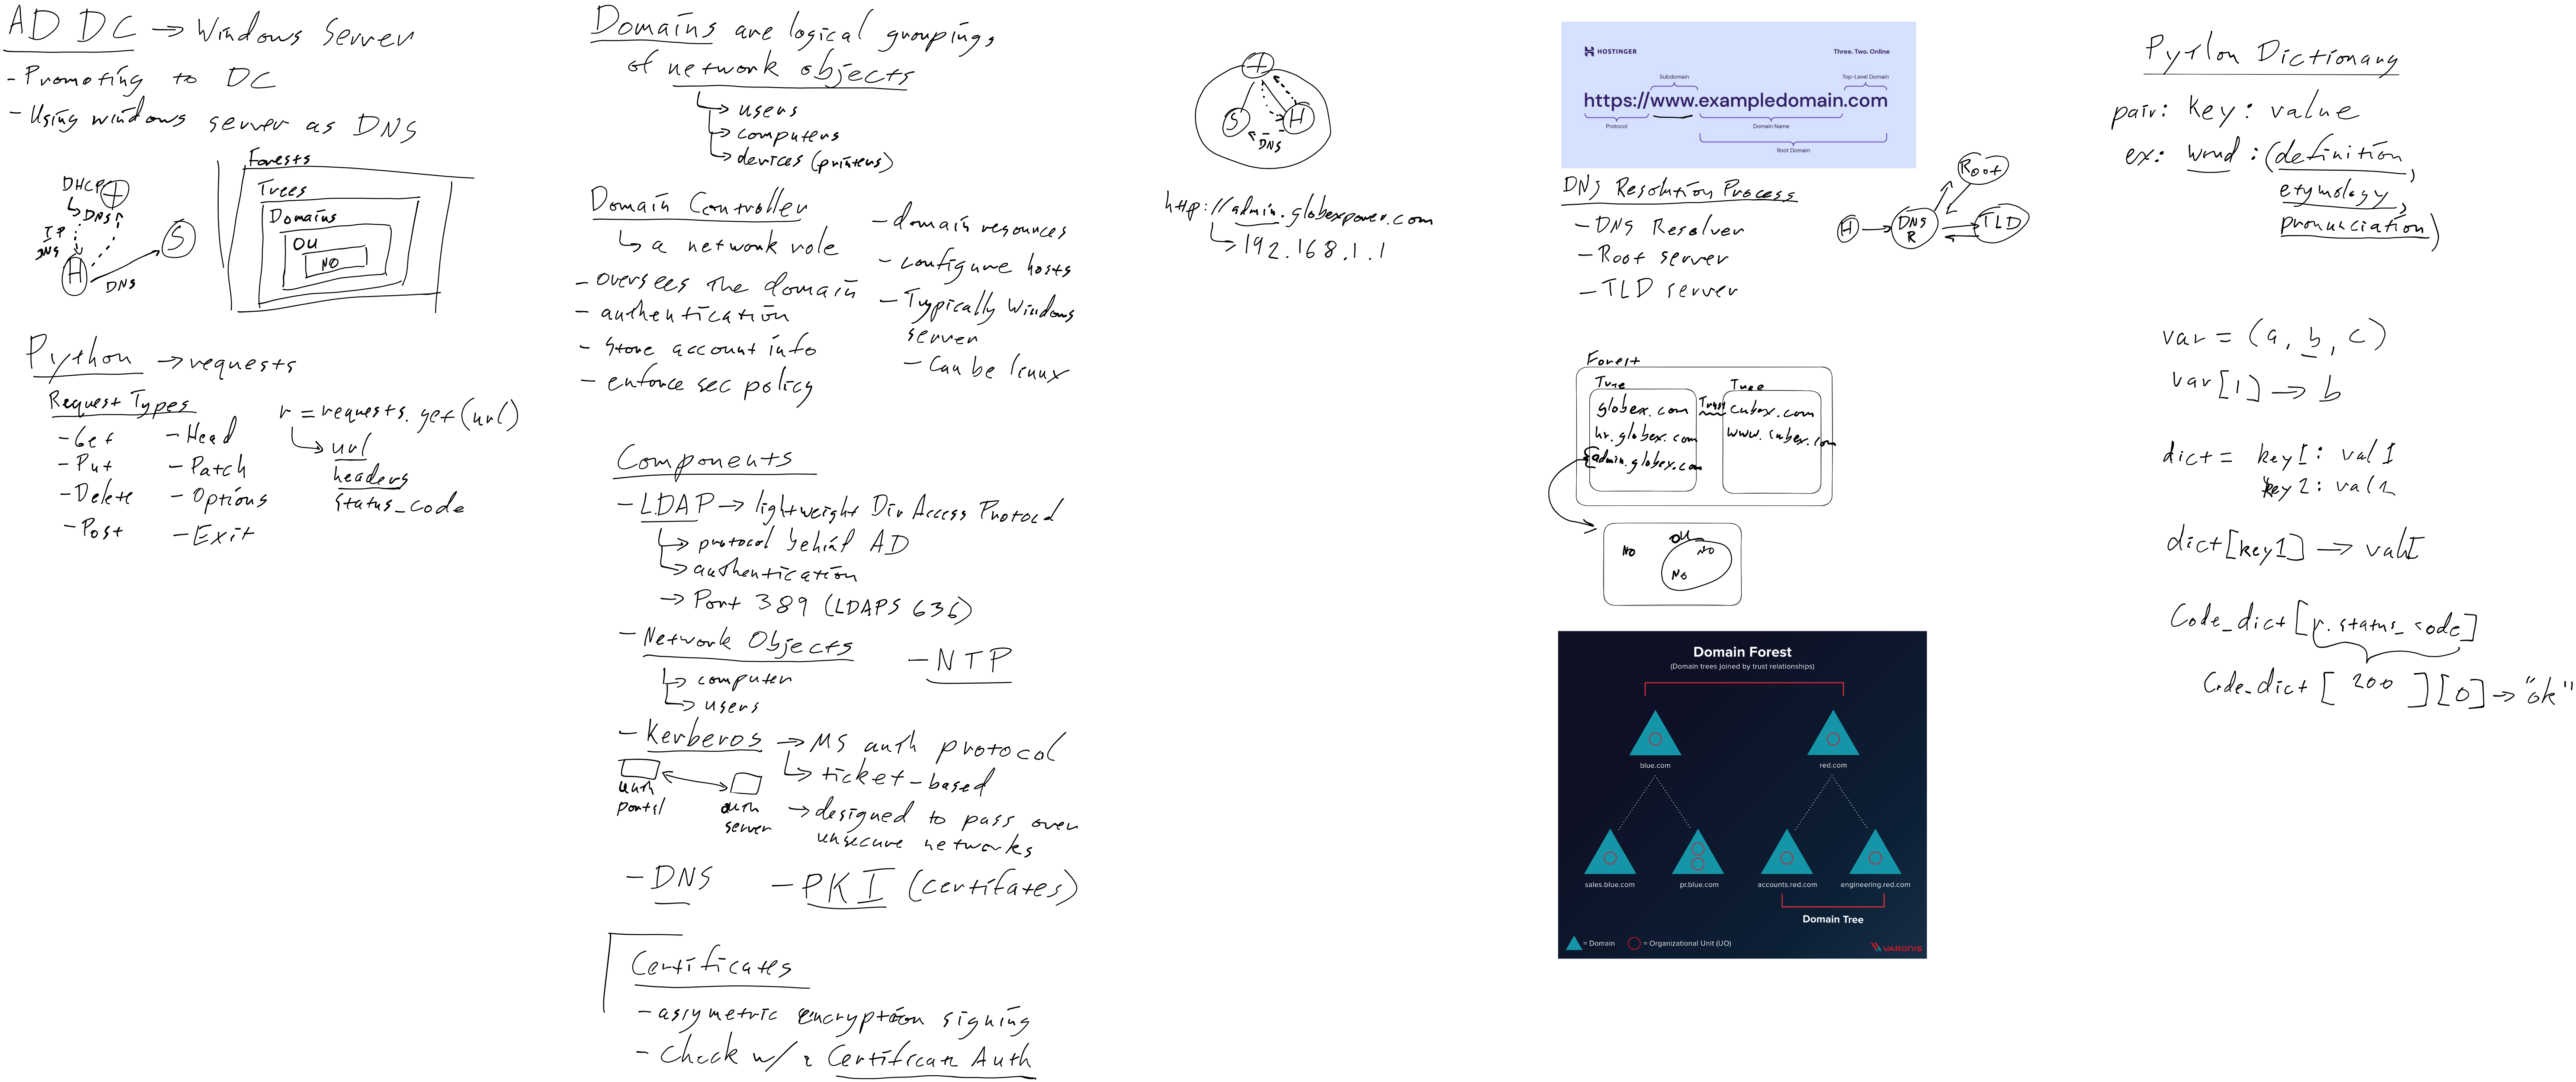 AD DC → Windows Server
- Promoting to DC
- Using windows server as DNS
DHCP
↳ DNS
IP
DNS
H
DNS
S
Forests
Trees
Domains
OU
NO
Python → requests
Request Types
- Get
- Put
- Delete
- Post
- Head
- Patch
- Options
- Exit
r = requests.get(url)
↳ url
headers
status_code
Domains are logical groupings
of network objects
↳ users
↳ computers
↳ devices (printers)
Domain Controller
↳ a network role
- oversees the domain
- authentication
- store account info
- enforce sec policy
- domain resources
- configure hosts
- Typically Windows
server
- Can be linux
Components
- LDAP → lightweight Dir Access Protocol
↳ protocol behind AD
↳ authentication
→ Port 389 (LDAPS 636)
- Network Objects
↳ computer
↳ users
- NTP
- Kerberos → MS auth protocol
↳ ticket-based
→ designed to pass over
unsecure networks
auth
portal
auth
server
- DNS
- PKI (certifates)
Certificates
- assymetric encryption signing
- Check w/ a Certificate Auth
S
H
DNS
http://admin.globexpower.com
↳ 192.168.1.1
HOSTINGER
Three. Two. Online
Subdomain
Top-Level Domain
https://www.exampledomain.com
Protocol
Domain Name
Root Domain
DNS Resolution Process
- DNS Resolver
- Root server
- TLD server
H
DNS
R
Root
TLD
Forest
Tree
globex.com
hr.globex.com
admin.globex.com
Trust
Tree
cubex.com
www.cubex.com
NO
OU
NO
NO
Domain Forest
(Domain trees joined by trust relationships)
blue.com
red.com
sales.blue.com
pr.blue.com
accounts.red.com
engineering.red.com
Domain Tree
= Domain
= Organizational Unit (UO)
VARONIS
Python Dictionary
pair: key: value
ex: word: (definition,
etymology,
pronunciation)
var = (a, b, c)
var[1] → b
dict = key1: val1
key2: val2
dict[key1] → val1
Code_dict[r.status_code]
Code_dict[200][0] → "ok"